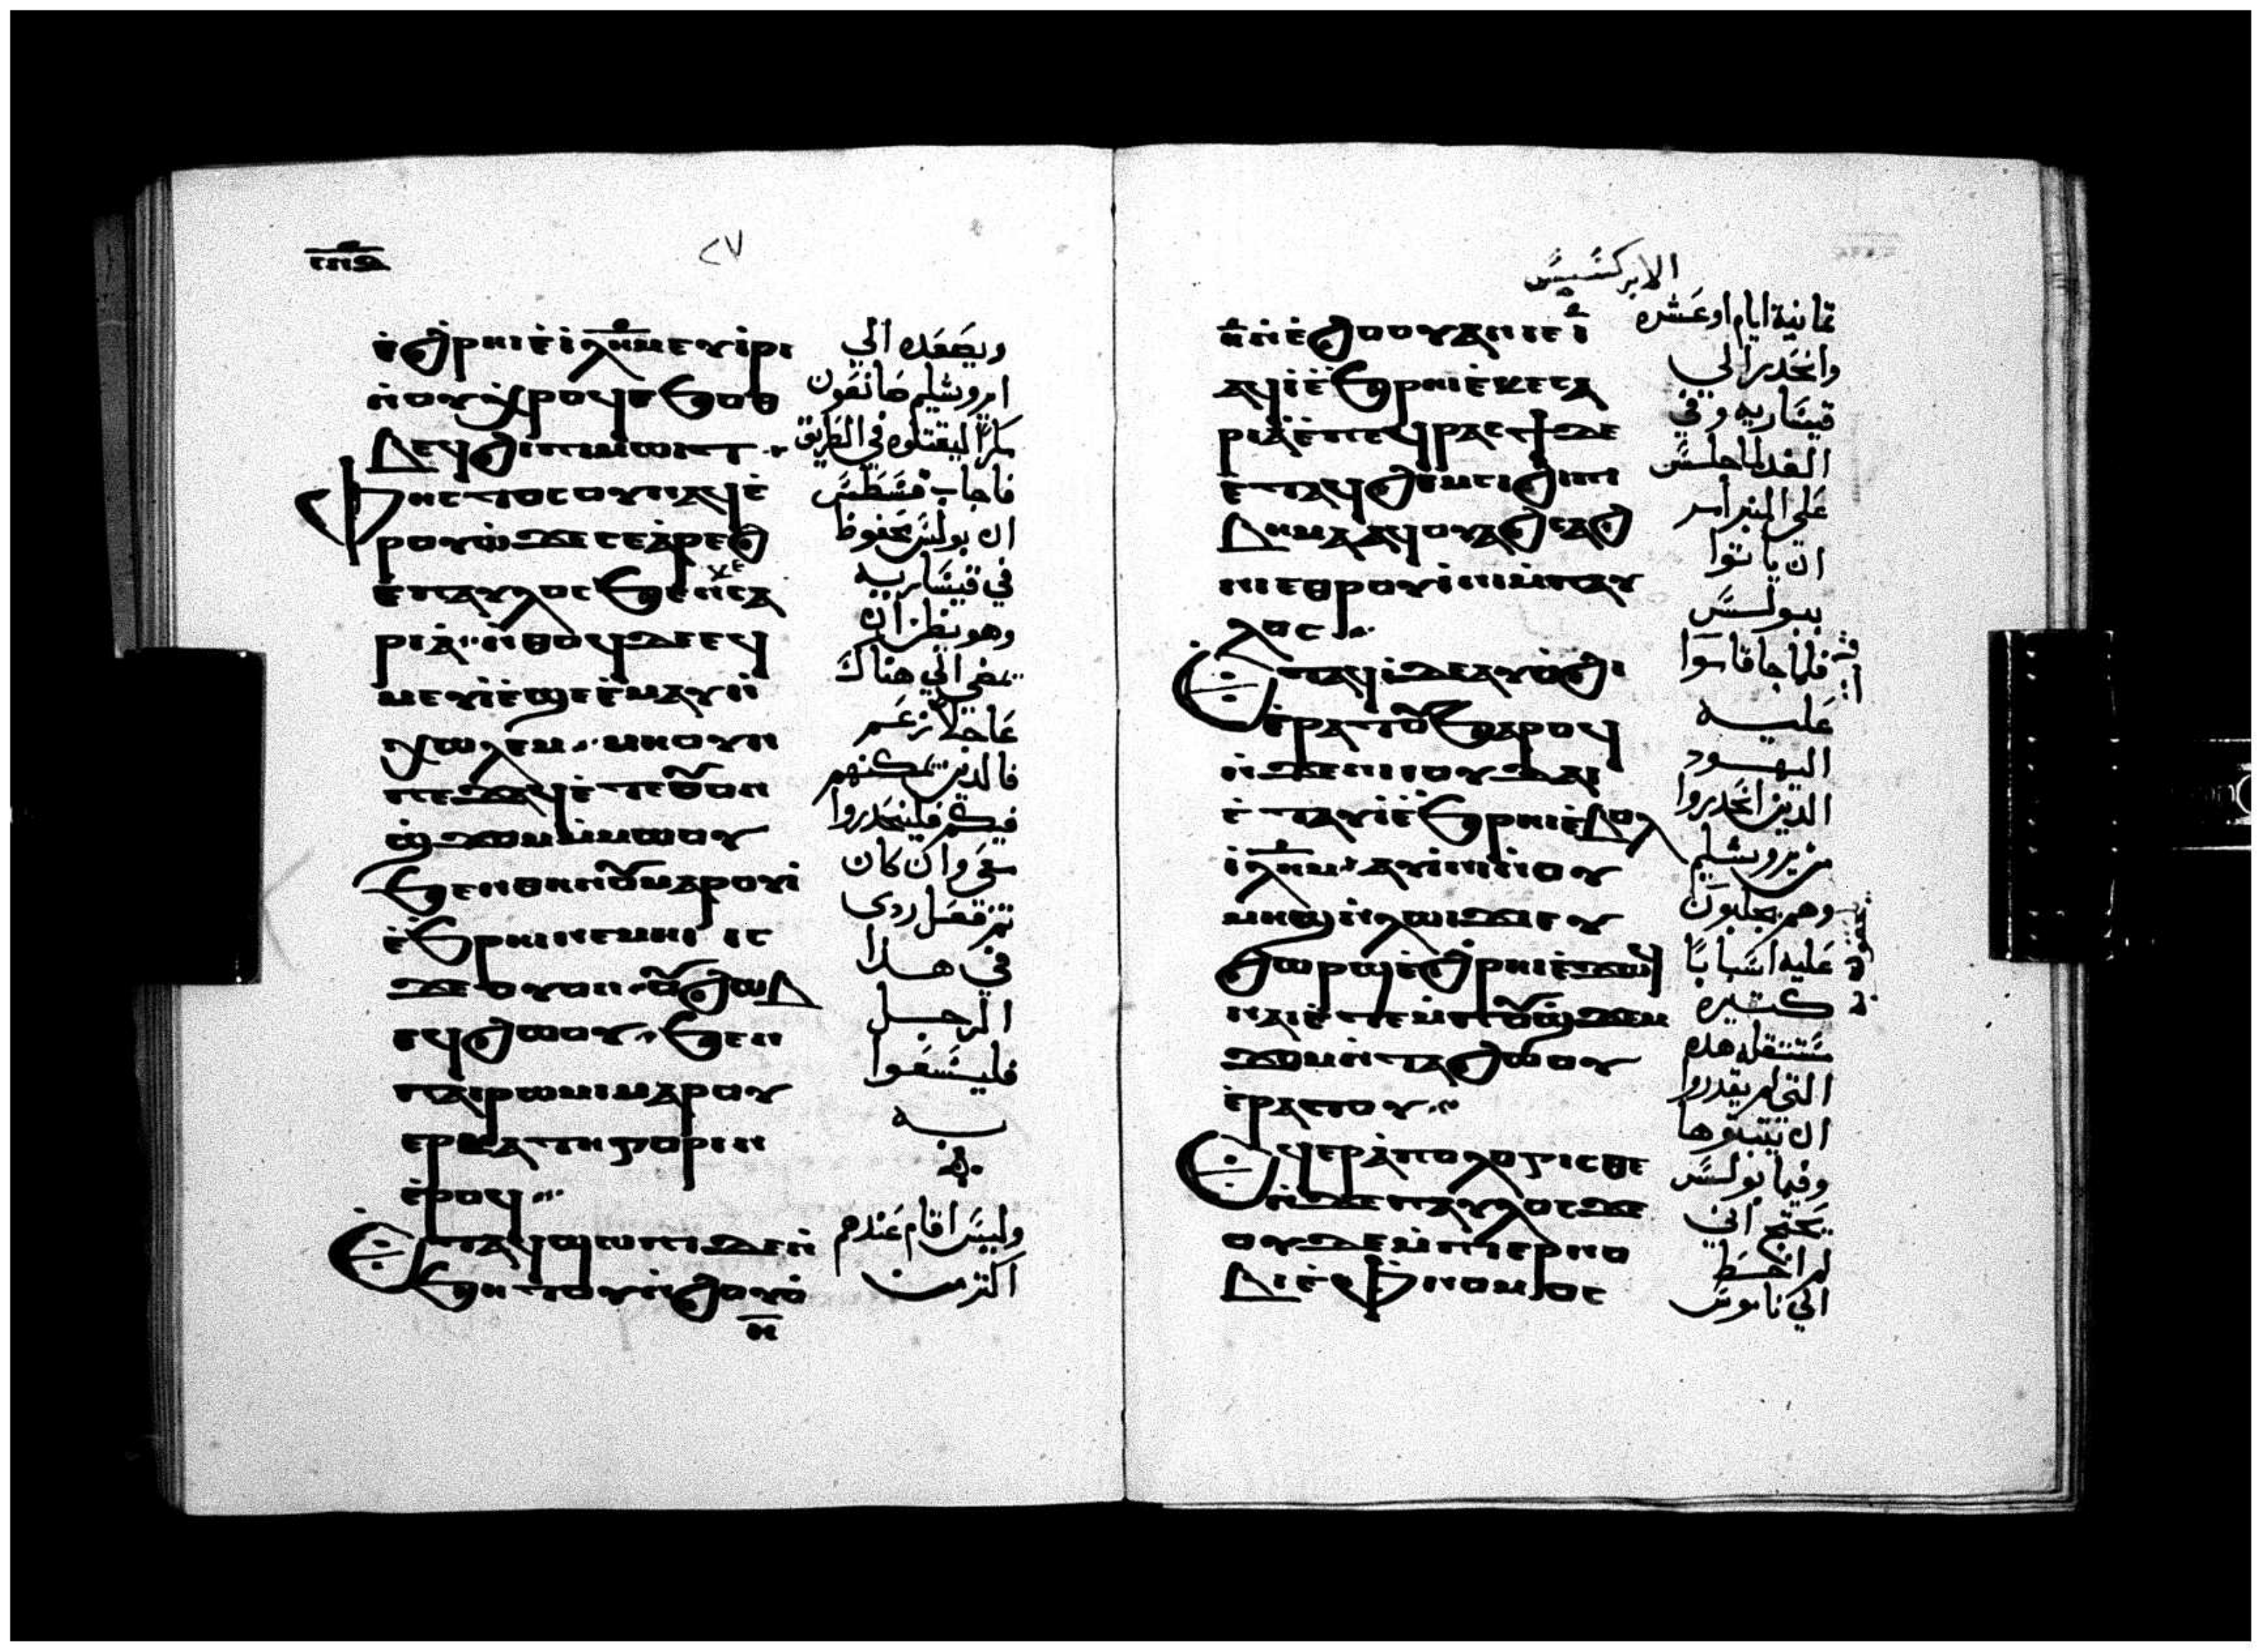 ⲥⲡⲑ
٨٧
ⲉ̀ϩ̀ⲣⲏⲓ ⲉ̀ⲓⲗ̅ⲏ̅ⲙ̅ ⲉⲩⲓ̀ⲣⲓ
ⲛ̀ⲟⲩⲭ̀ⲣⲟϥ ⲉϧⲟⲑ
ⲃⲉϥ ϩⲓ ⲡⲓⲙⲱⲓⲧ
ⲫⲏⲥⲧⲟⲥ ⲟⲩⲛ ⲁϥⲉ̀
ⲣⲟⲩⲱ̀ ϫⲉ ⲥⲉⲁ̀ⲣⲉϩ
ⲉ̀ⲡⲁⲩⲗⲟⲥ ϧⲉⲛ ⲕⲉⲥⲁ
ⲣⲓⲁ̀ ⲛ̀ⲑⲟϥ ϫⲉ ⲉϥ
ⲙⲉⲩⲓ̀ ⲉ̀ϣⲉ ⲉ̀ⲙⲁⲩ ⲛ̀
ⲭⲱⲗⲉⲙ ⲛⲏ ⲟⲩⲛ
ⲡⲉϫⲁϥ ⲉ̀ⲧⲉ ⲟⲩⲟⲛ
ϣ̀ϫⲟⲙ ⲙ̀ⲙⲱⲟⲩ
ϧⲉⲛ ⲑⲏⲛⲟⲩ ⲙⲁⲣⲟⲩⲓ̀
ⲉ̀ϧⲣⲏⲓ ⲛⲉⲙⲏⲓ ⲓⲥ
ϫⲉ ⲟⲩⲟⲛ ⲟⲩϩⲱⲃ
ⲉϥϩⲱⲟⲩ ϧⲉⲛ
ⲡⲁⲓⲣⲱⲙⲓ ⲙⲁⲣⲟⲩ
ⲉⲣⲕⲁⲧⲏⲅⲟⲣⲓⲛ
ⲉ̀ⲣⲟϥ
ⲉ̀ⲧⲁϥϣⲱⲡⲓ ϫⲉ ⲛ̀
ϧⲏⲧⲟⲩ ⲛ̀ϩⲟⲩⲟ̀
ⲏ̅
ويصعده الي
اروشليم صانعون
مكرا ليقتلوه في الطريق
فاجاب فسطس
ان بولس محفوظ
في قيساريه
وهو يظن ان
يمضي الي هناك
عاجلا زعم
فالذين يمكنهم
فيكم فلينحدروا
معي وان كان
ثم فعل ردي
في هذا
الرجل
فليسعوا
به
وليس اقام عندهم
اكثر من
الابركسيس
ⲛ̀ⲉ̀ϩⲟⲟⲩ ⲁⲛ ⲓⲉ ⲓ̅
ⲁϥⲓ̀ ⲉ̀ϧⲣⲏⲓ ⲉ̀ⲕⲉⲥⲁ
ⲣⲓⲁ̀ ⲉ̀ⲡⲉϥⲣⲁⲥϯ ϫⲉ
ⲉ̀ⲧⲁϥϩⲉⲙⲥⲓ ϩⲓ ⲡⲓ
ⲃⲏⲙⲁ ⲁϥⲟⲩⲁϩⲥⲁϩ
ⲛⲓ ⲉⲑⲣⲟⲩⲓ̀ⲛⲓ ⲙ̀ⲡⲁⲩ
ⲗⲟⲥ
ⲉ̀ⲧⲁϥⲓ̀ ϫⲉ ⲁⲩⲟ̀ϩⲓ
ⲉ̀ⲣⲁⲧⲟⲩ ϧⲁⲣⲟϥ
ⲛ̀ϫⲉ ⲛⲓⲓⲟⲩϫⲁⲓ
ⲉ̀ⲧⲁⲩⲓ̀ ⲉ̀ϧⲣⲏⲓ ⲉ̀ⲃⲟⲗ
ⲓ̀ⲗ̅ⲏ̅ⲙ̅ ⲁⲩⲓ̀ⲛⲓ ⲛ̀ⲟⲩ
ⲙⲏϣ ⲛ̀ⲗⲱⲓϫⲓ ⲉⲩ
ϩⲱⲣϣ ⲉ̀ϩ̀ⲣⲏⲓ ⲉ̀ϫⲱϥ
ⲛⲁⲓ ⲉ̀ⲧⲉ ⲙ̀ⲡⲟⲩϣ̀ϫⲉⲙ
ϫⲟⲙ ⲛ̀ⲧⲁϩⲱⲟⲩ
ⲉ̀ⲣⲁⲧⲟⲩ
ⲉϥⲉⲣⲁ̀ⲡⲟⲗⲟⲅⲓⲥⲑⲉ
ⲛ̀ϫⲉ ⲡⲁⲩⲗⲟⲥ ϫⲉ
ⲟⲩϫⲉ ⲙ̀ⲡⲓⲉⲣⲛⲟ
ⲃⲓ ⲉ̀ⲫ̀ⲛⲟⲙⲟⲥ
ثمانية ايام او عشره
وانحدر الي
قيساريه وفي
الغد لما جلس
علي المنبر امر
ان ياتوا
ببولس
فلما جا قاموا
عليه
اليهود
الذين انحدروا
من يروشليم
وهم يجلبون
عليه اسبابا
كثيره
ستثقله هذه
التي لم يقدروا
ان يثبتوها
وفيما بولس
يحتج اني
لم اخط
الي ناموس